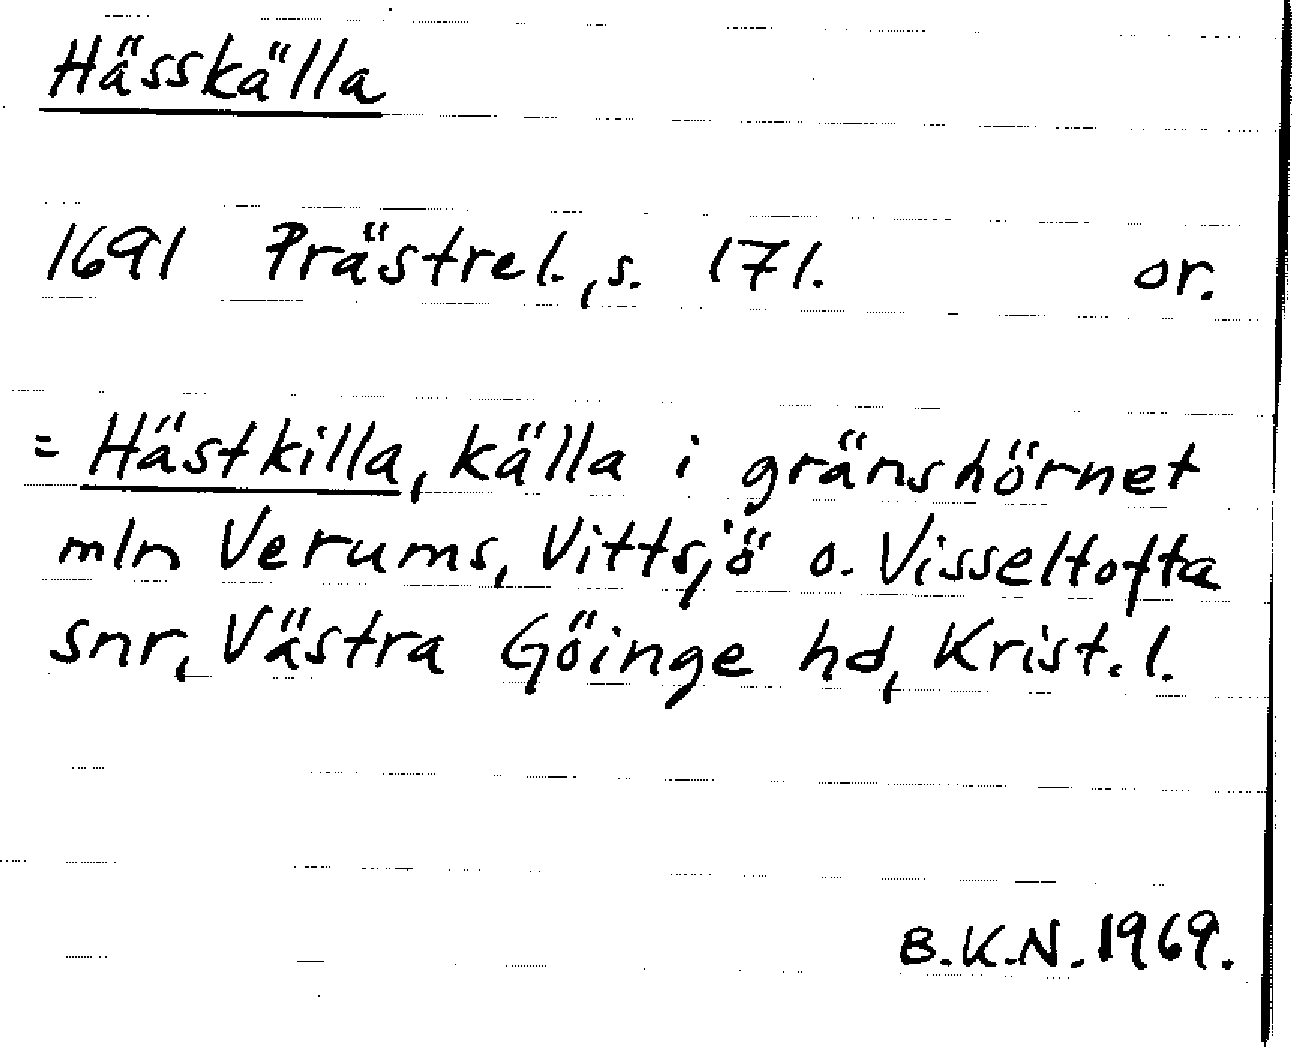 Hässkälla
1691 Prästrel., s. 171. or.
= Hästkilla, källa i gränshörnet
mln Verums, Vittsjö o. Visseltofta
snr, Västra Göinge hd, Krist. l.
B.K.N. 1969.